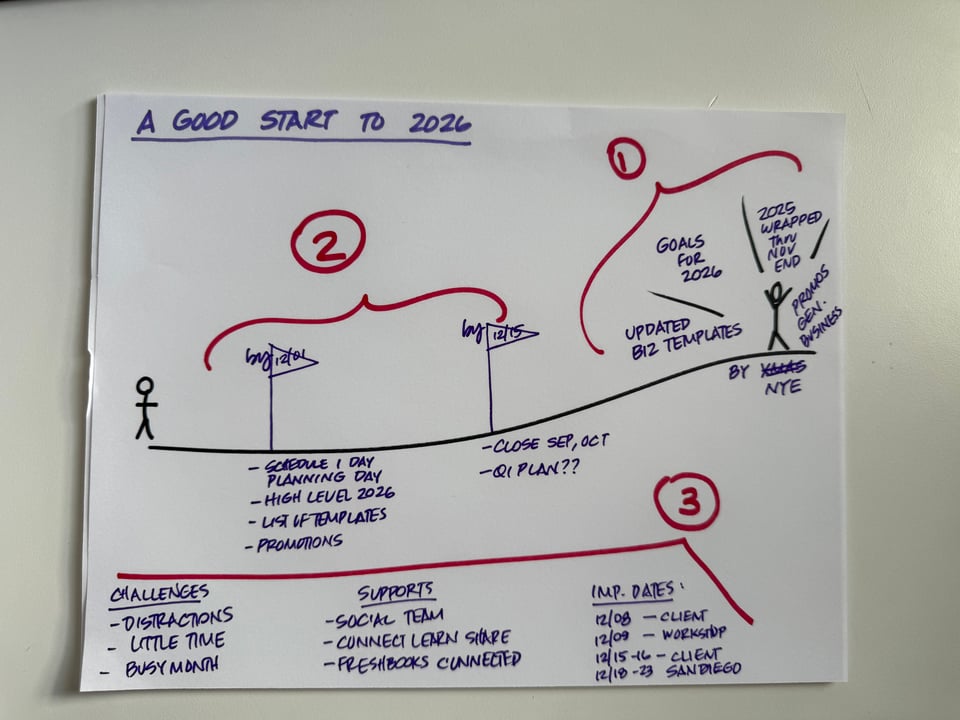 A GOOD START TO 2026
1
2025
WRAPPED
thru
NOV
END
GOALS
FOR
2026
PROMOS
GEN.
BUSINESS
UPDATED
BIZ TEMPLATES
BY XMAS
NYE
2
by 12/01
by 12/15
- SCHEDULE 1 DAY
PLANNING DAY
- HIGH LEVEL 2026
- LIST OF TEMPLATES
- PROMOTIONS
- CLOSE SEP, OCT
- Q1 PLAN??
3
CHALLENGES
- DISTRACTIONS
- LITTLE TIME
- BUSY MONTH
SUPPORTS
- SOCIAL TEAM
- CONNECT LEARN SHARE
- FRESHBOOKS CONNECTED
IMP. DATES:
12/08 - CLIENT
12/09 - WORKSHOP
12/15-16 - CLIENT
12/18-23 SAN DIEGO